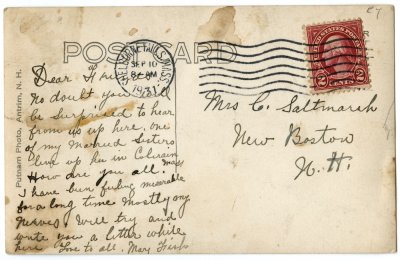 POST CARD
SHELBURNE FALLS, MASS.
SEP 10
8 AM
1931
UNITED STATES POSTAGE
2 CENTS 2
Putnam Photo, Antrim, N. H.
Dear
No doubt you will
be surprised to hear
from us up here, one
of my Married Sisters
live up here in Colrain
Mass
How are you all.
I have been feeling miserable
for a long time mostly my
nerves, Will try and
write you a letter while
here Love to all. Mary
Mrs C. Saltmarsh
New Boston
N. H.